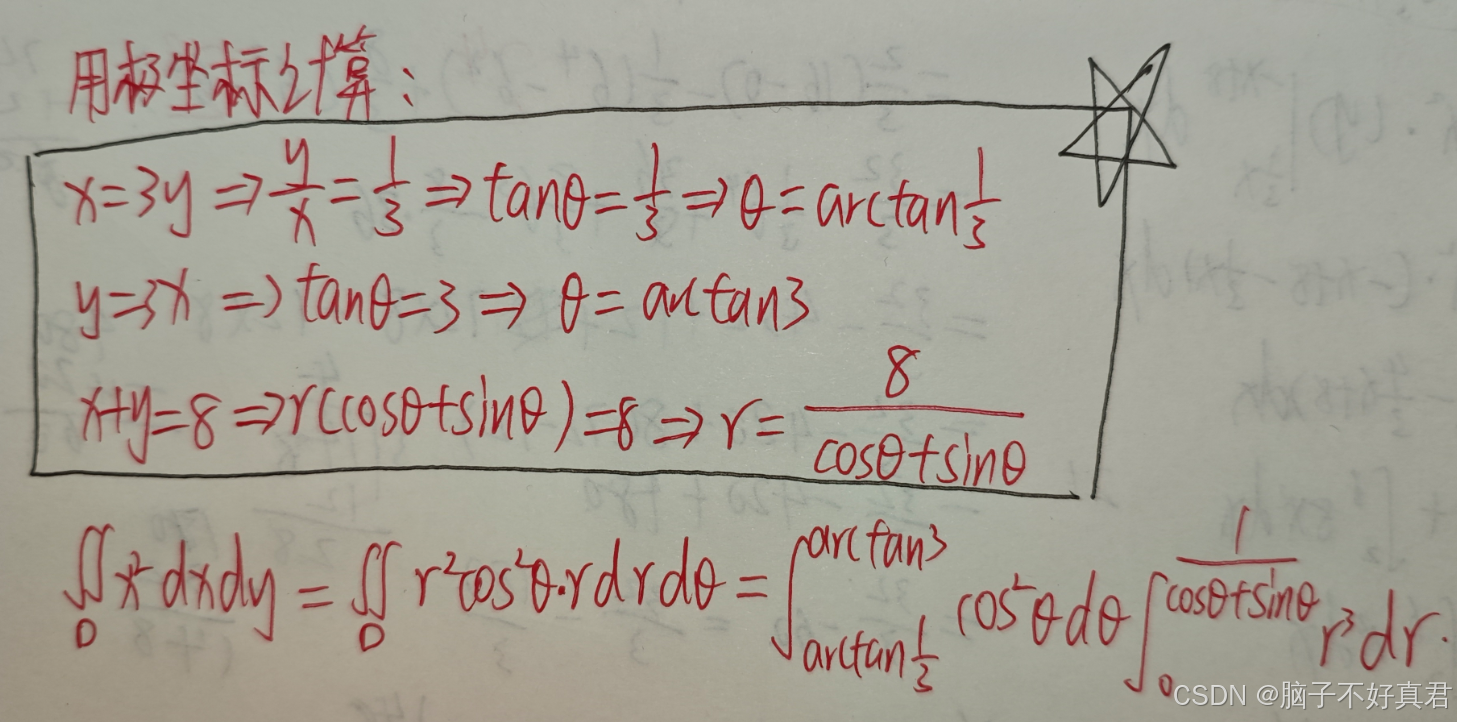 用极坐标计算：
x=3y ⇒ y/x = 1/3 ⇒ tanθ = 1/3 ⇒ θ = arctan 1/3
y=3x ⇒ tanθ=3 ⇒ θ = arctan3
x+y=8 ⇒ r(cosθ+sinθ)=8 ⇒ r = 8/(cosθ+sinθ)
∬_D x² dxdy = ∬_D r²cos²θ·rdrdθ = ∫_{arctan 1/3}^{arctan3} cos²θdθ ∫_0^{1/(cosθ+sinθ)} r³dr.
CSDN @脑子不好真君